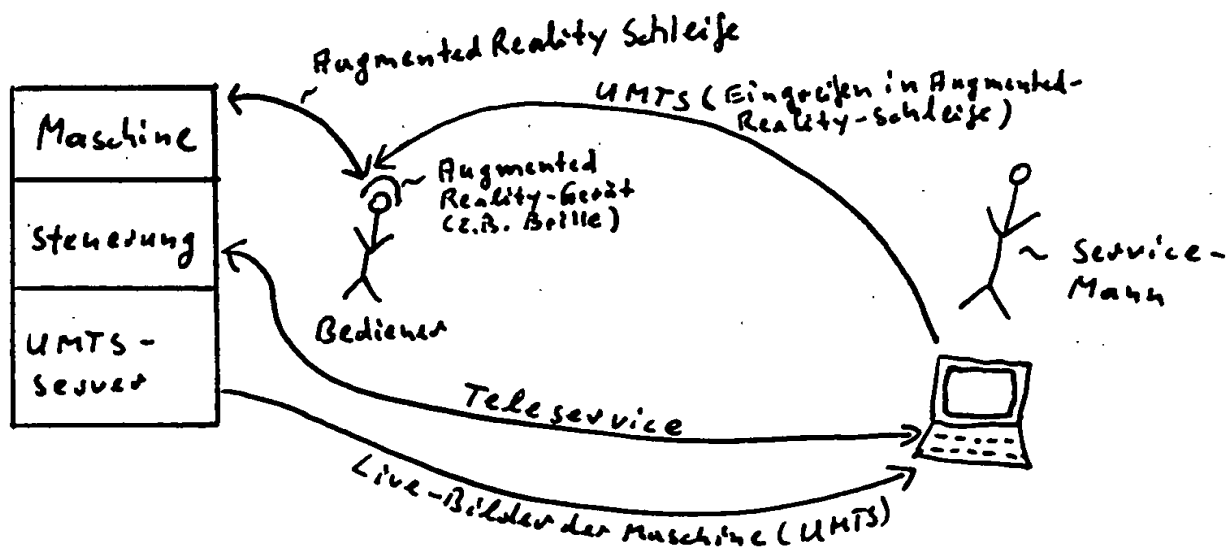 Augmented Reality Schleife
UMTS (Eingreifen in Augmented-
Reality-Schleife)
Maschine
Steuerung
UMTS-
Server
Augmented
Reality-Gerät
(z.B. Brille)
Bediener
Service-
Mann
Teleservice
Live-Bilder der Maschine (UMTS)